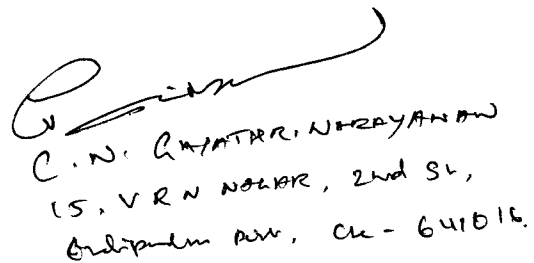 C. N. GAYATHRI NARAYANAN
15, V R N NAGAR, 2nd St,
Post, Cbe - 641016.